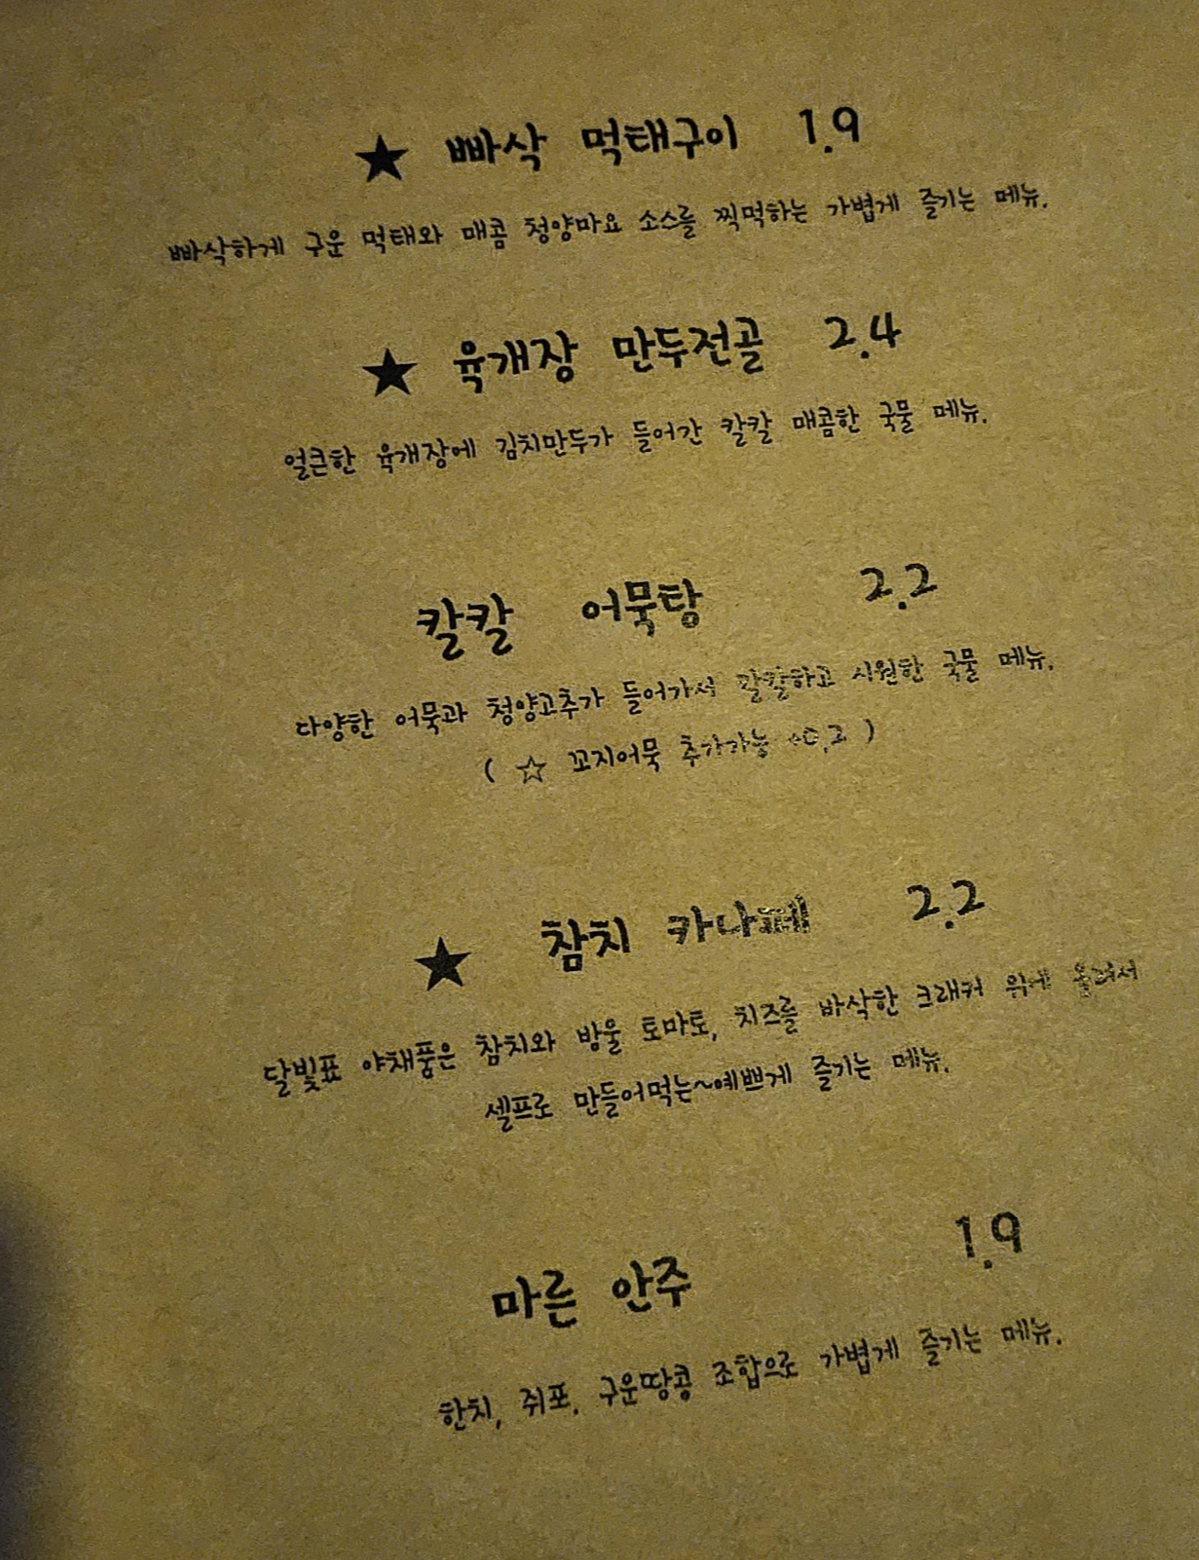 ★ 빠삭 먹태구이 1.9
빠삭하게 구운 먹태와 매콤 청양마요 소스를 찍먹하는 가볍게 즐기는 메뉴.
★ 육개장 만두전골 2.4
얼큰한 육개장에 김치만두가 들어간 칼칼 매콤한 국물 메뉴.
칼칼 어묵탕 2.2
다양한 어묵과 청양고추가 들어가서 칼칼하고 시원한 국물 메뉴.
( ☆ 꼬지어묵 추가가능 +0.2 )
★ 참치 카나페 2.2
달빛표 야채품은 참치와 방울 토마토, 치즈를 바삭한 크래커 위에 올려서
셀프로 만들어먹는~예쁘게 즐기는 메뉴.
마른 안주 1.9
한치, 쥐포, 구운땅콩 조합으로 가볍게 즐기는 메뉴.